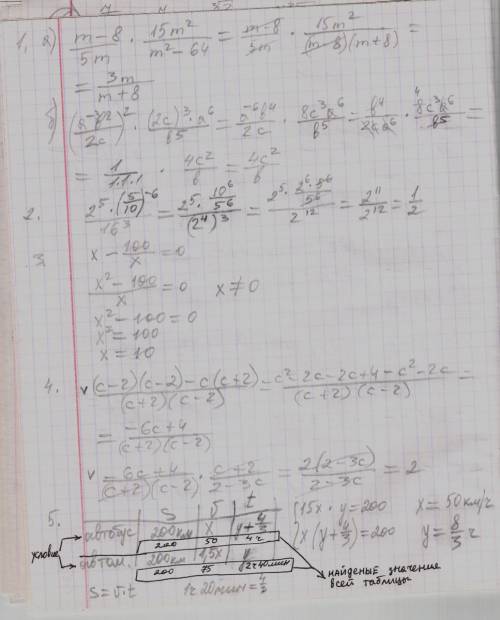 1, а) (m-8)/5m · 15m²/(m²-64) = (m-8)/5m · 15m²/((m-8)(m+8)) =
= 3m/(m+8)
б) (a⁻³b²/2c)² · (2c)³·a⁶/b⁵ = a⁻⁶b⁴/2c · 8c³a⁶/b⁵ = b⁴/2ca⁶ · 8c³a⁶/b⁵ =
= 1/1·1·1 · 4c²/b = 4c²/b
2. 2⁵·(5/10)⁻⁶/16³ = 2⁵·10⁶/5⁶/(2⁴)³ = 2⁵·2⁶·5⁶/5⁶/2¹² = 2¹¹/2¹² = 1/2
3. x - 100/x = 0
(x²-100)/x = 0 x ≠ 0
x²-100 = 0
x² = 100
x = 10
4. v ((c-2)(c-2)-c(c+2))/((c+2)(c-2)) = (c²-2c-2c+4-c²-2c)/((c+2)(c-2)) =
= (-6c+4)/((c+2)(c-2))
v (-6c+4)/((c+2)(c-2)) · (c+2)/(2-3c) = 2(2-3c)/(2-3c) = 2
5. S v̄ t
автобус 200км x y+4/3 {1,5x·y=200 x=50км/ч
200 50 4ч
условие
x(y+4/3)=200 y=8/3 ч
автом. 200км 1,5x y
200 75 2ч40мин
найденые значение всей таблицы
S=v̄·t 1ч 20мин=4/3